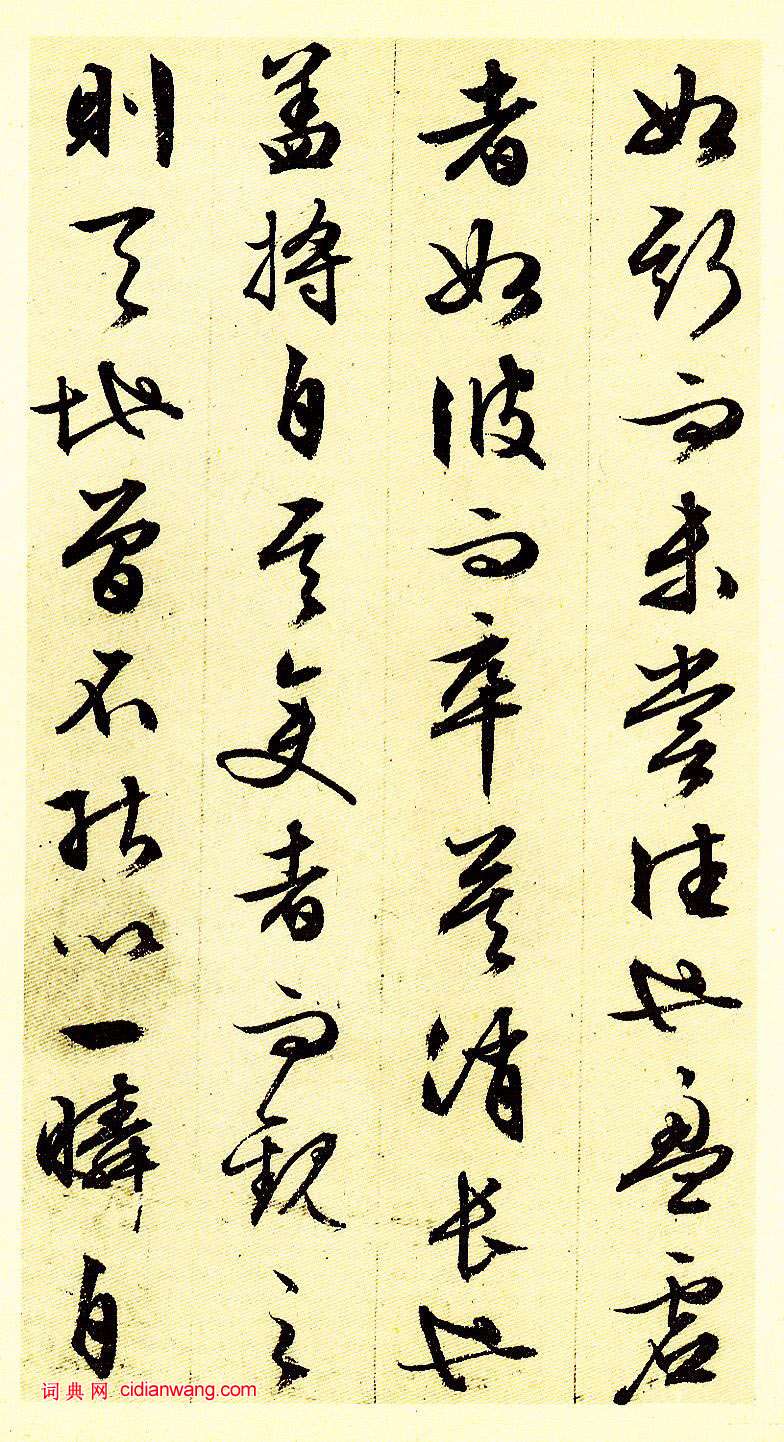 如斯而未嘗往也盈虛
者如彼而卒莫消長也
盖將自其變者而觀之
則天地曾不能以一瞬自
词典网 cidianwang.com